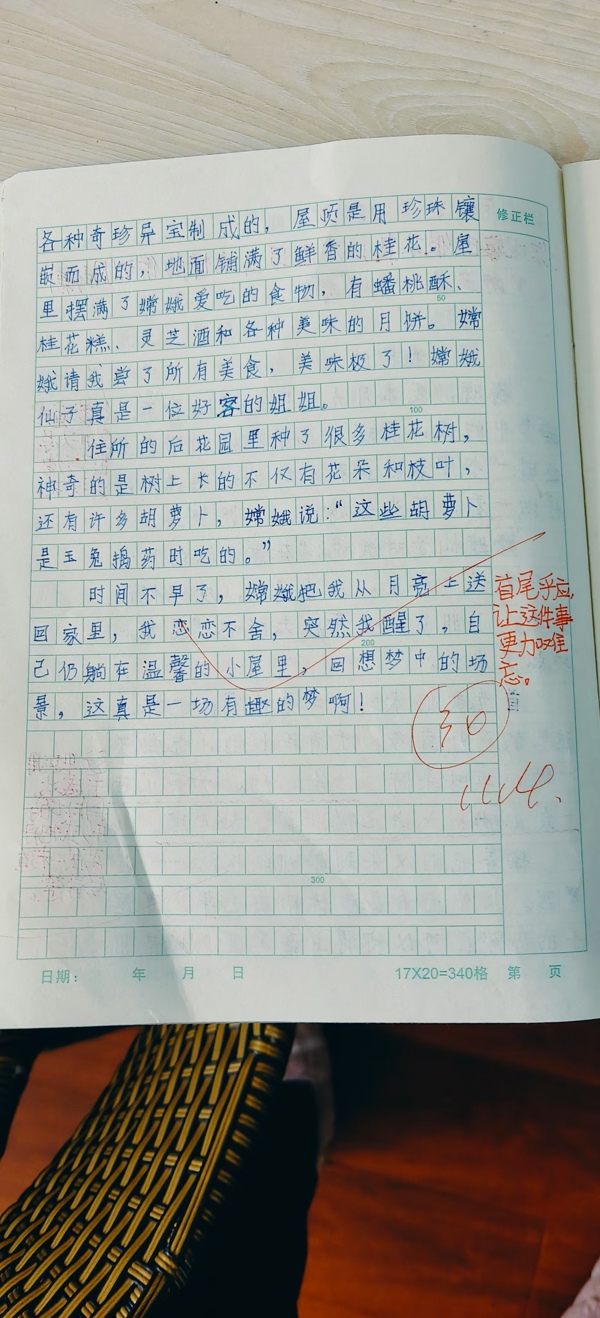 各种奇珍异宝制成的，屋顶是用珍珠镶
修正栏
嵌而成的，地面铺满了鲜香的桂花。屋
里摆满了嫦娥爱吃的食物，有蟠桃酥、
50
桂花糕、灵芝酒和各种美味的月饼。嫦
娥请我尝了所有美食，美味极了！嫦娥
仙子真是一位好客的姐姐。
100
住所的后花园里种了很多桂花树，
神奇的是树上长的不仅有花朵和枝叶，
还有许多胡萝卜，嫦娥说：“这些胡萝卜
是玉兔捣药时吃的。”
时间不早了，嫦娥把我从月亮上送
回家里，我恋恋不舍，突然我醒了，自
200
己仍躺在温馨的小屋里，回想梦中的场
景，这真是一场有趣的梦啊！
首尾呼应，
让这件事
更加难
忘。
30
11.4.
300
日期： 年 月 日
17X20=340格 第 页